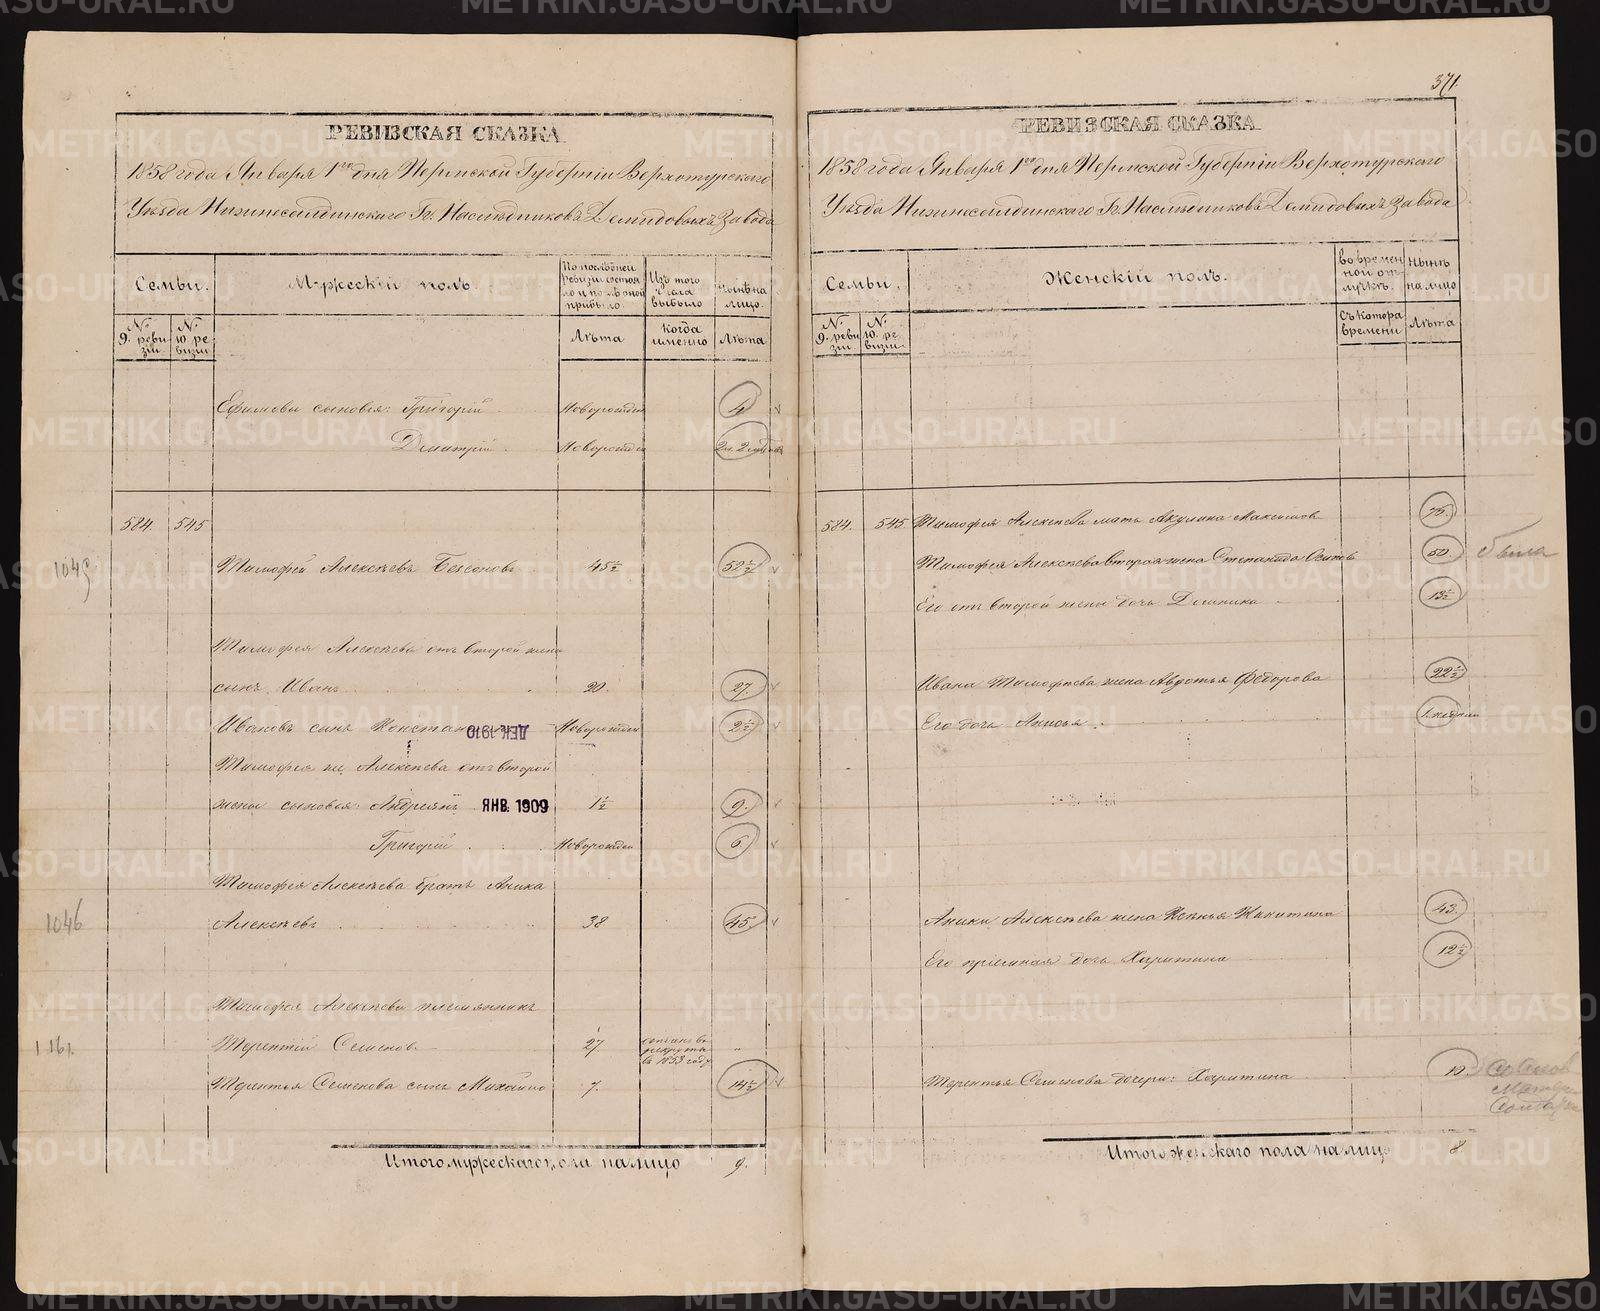 371.
РЕВИЗСКАЯ СКАЗКА
1858 года Января 1го дня Пермской Губерніи Верхотурского
Уѣзда Нижнесалдинскаго Гг. Наслѣдниковъ Демидовыхъ Завода
Семьи.
Мужескій полъ.
По послѣдней ревизіи состояло и послѣ оной прибыло
Изъ того числа выбыло
Нынѣ на лицо.
№ 9. ревизіи
№ 10 ревизіи
Лѣта
когда именно
Лѣта
Ефимовы сыновья: Григорій новорожден 4
Дмитрій новорожден
584. 545
1045 Тимофей Алексѣевъ Безсоновъ 45½ 52½
Тимофея Алексѣева отъ второй жены
сынъ Иванъ 20. 27.
Ивановъ сынъ Констан ДЕК. 1910 Новорожден 2½
Тимофея же Алексѣева отъ второй
жены сыновья: Андреянъ ЯНВ. 1909 1½ 9.
Григорій Новорожден 6
Тимофея Алексѣева братъ Аника
1046 Алексѣевъ 38 45.
Тимофея Алексѣева племянникъ
1161. Терентій Семеновъ 27 въ рекруты въ 1853 году "
Терентья Семенова сынъ Михайло 7. 14½
Итого мужескаго пола на лицо 9.
РЕВИЗСКАЯ СКАЗКА
1858 года Января 1го дня Пермской Губерніи Верхотурского
Уѣзда Нижнесалдинскаго Гг. Наслѣдниковъ Демидовыхъ Завода
Семьи.
Женскій полъ.
во временной отлучкѣ.
Нынѣ на лицо
№ 9. ревизіи
№ 10. ревизіи
Съ котора времени
Лѣта
584. 545 Тимофея Алексѣева мать Акулина Максимов 76.
Тимофея Алексѣева вторая жена Степанида Осипов 50
Его отъ второй жены дочь Домника 13½
Ивана Тимофеева жена Авдотья Федорова 22½
Его дочь Анисья 1 недѣли
Аники Алексѣева жена Ксенья Никитина 43.
Его пріемная дочь Харитина 12½
Терентья Семенова дочери: Харитина 10.
Итого женскаго пола на лицо 8.
METRIKI.GASO-URAL.RU